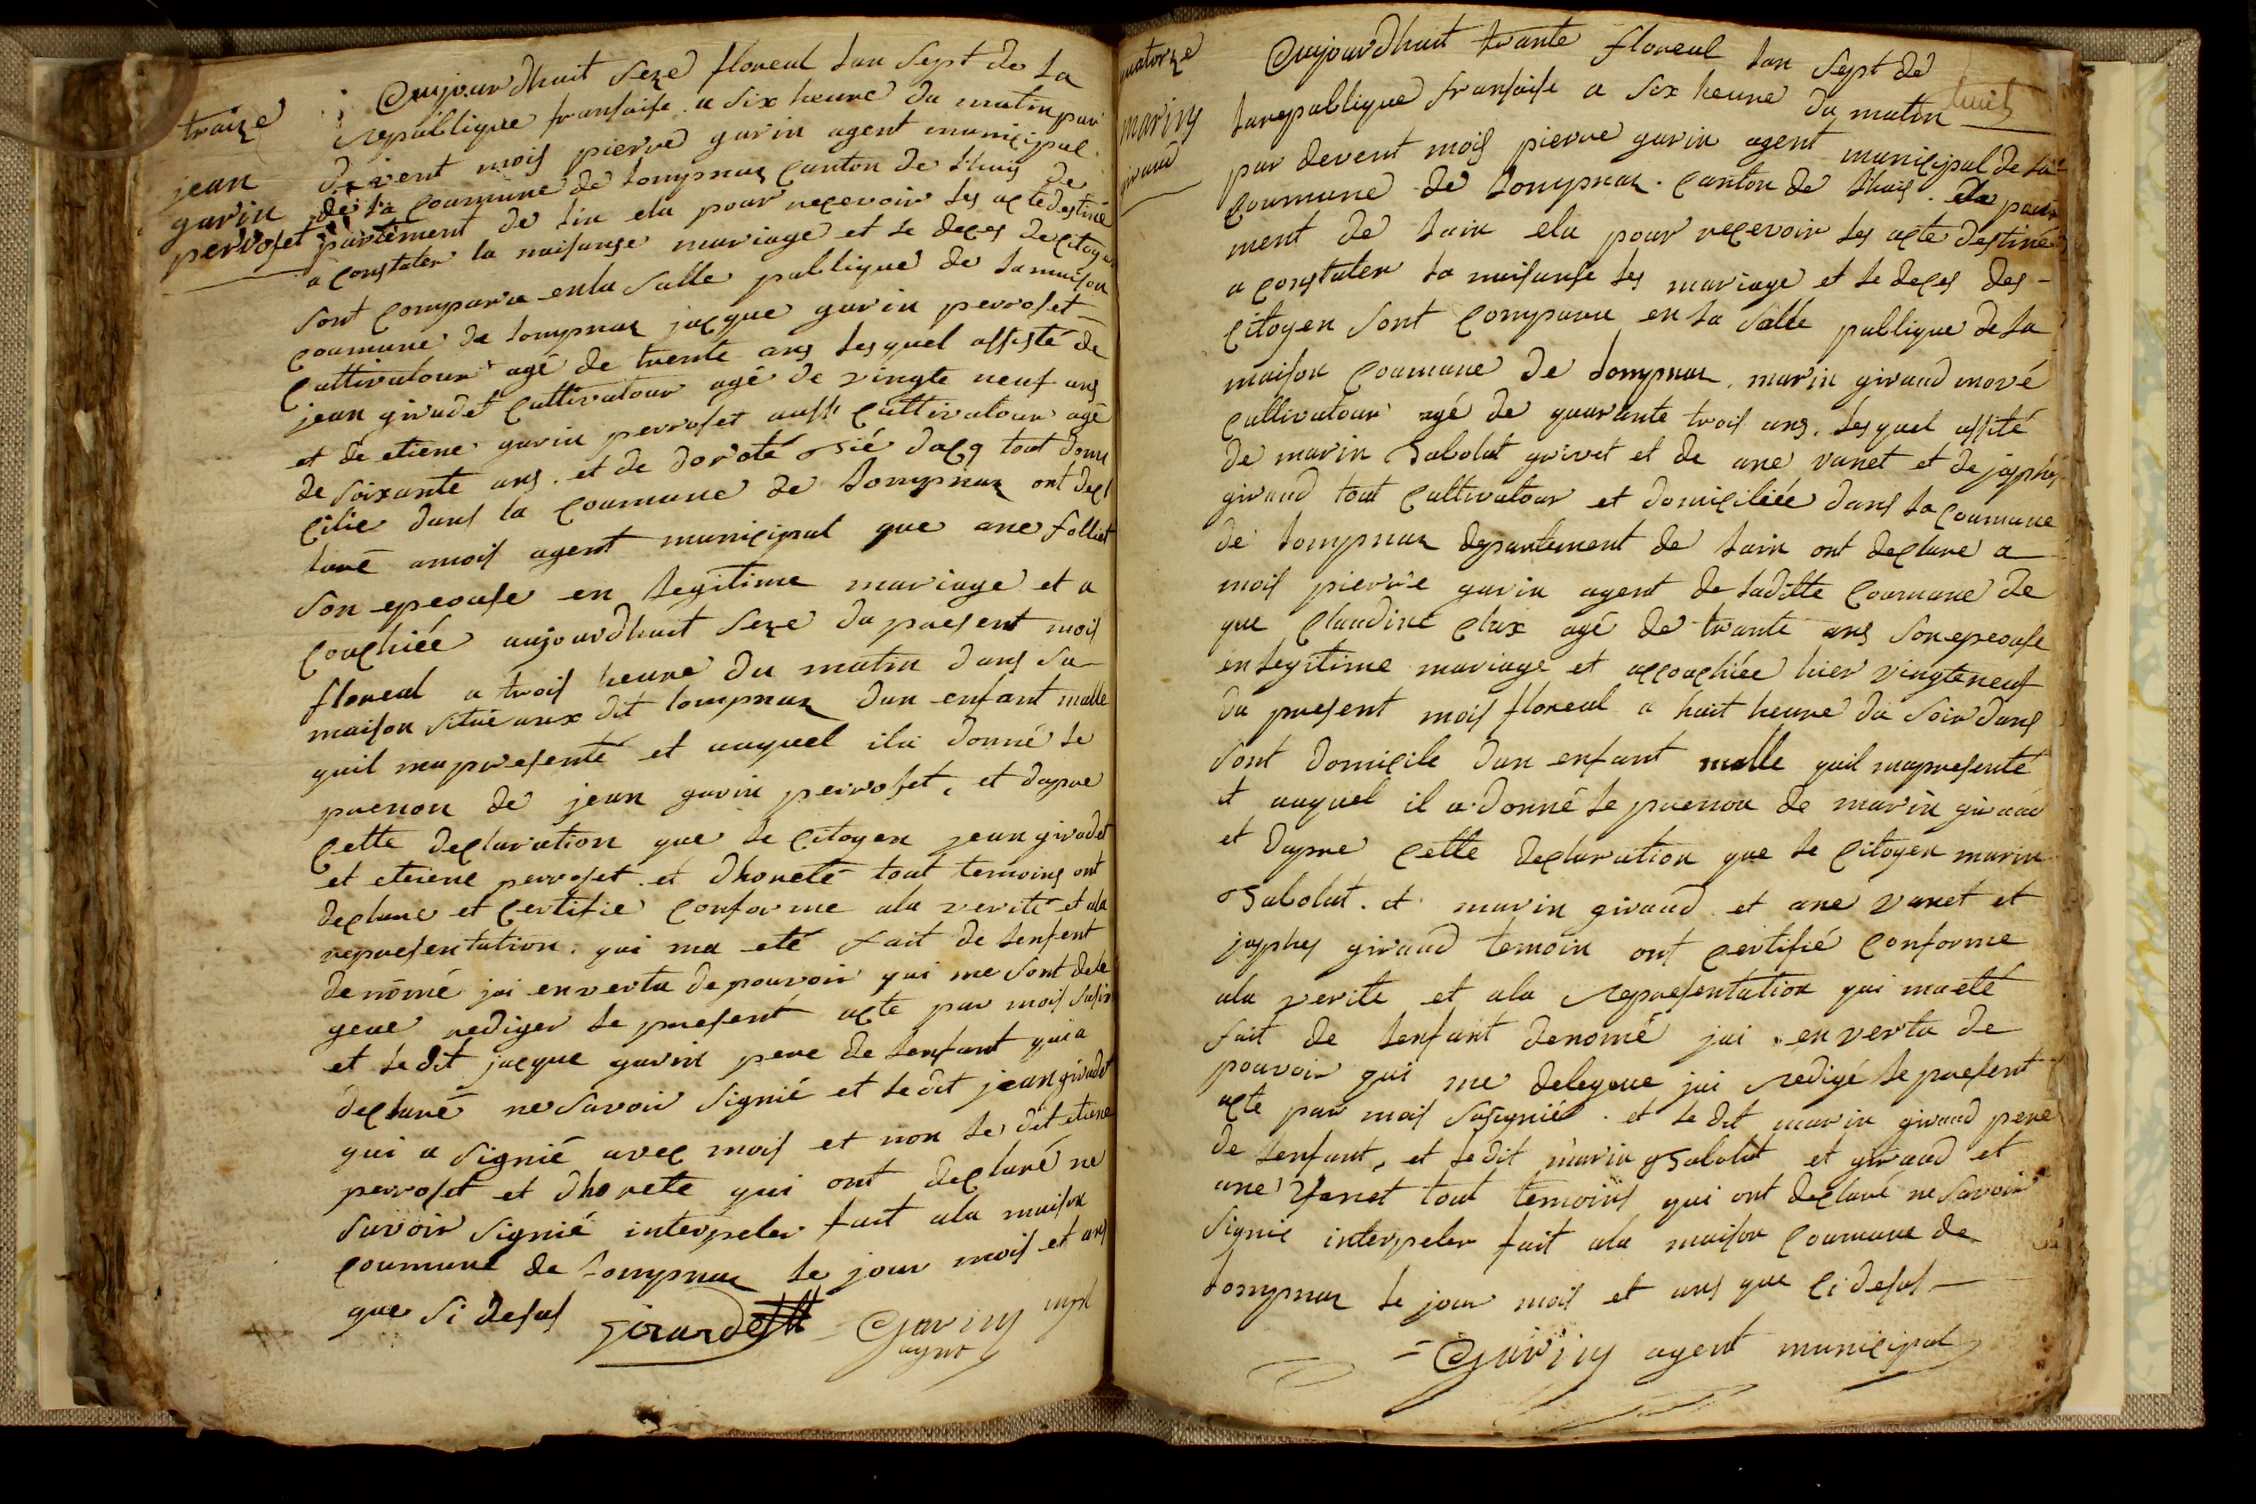 traize
jean
garin
perroset
Aujourdhuit seze floreal lan sept de la
republique fransaise a six heure du matin par
devent mois pierre garin agent municipal
de la coumune de lompnaz canton de lhuis de
partement de lin elu pour recevoir les acte destiné
a constater la naisanse mariage et le deces de citoyen
sont comparu en la salle publique de la maison
coumune de lompnaz jacque garin perroset
cultivatour agé de trente ans lesquel assisté de
jean girudet cultivatour agé de vingte neuf ans
et de etiene garin perroset aussi cultivatour agé
de soixante ans et de doroté tout domi
cilie dans la coumune de lompnaz ont decl
laré a mois agent municipal que ane folliet
son epeouse en legitime mariage et a
couchiée aujourdhuit seze du present mois
floreal a trois heure du matin dans sa
maison situé aux dit lompnaz dun enfant malle
quil ma presenté et auquel il a donné le
prenon de jean garin perroset, et dapre
cette declaration que le citoyen jean girodet
et etiene perroset et dhoreté tout temoins ont
declare et certifie conforme ala verité et ala
representation qui ma eté fait de lenfent
denomé jai en vertu de pouvoir qui me sont dele
geue rediger le present acte par mois
et le dit jacque garin pere de lenfant qui a
declaré ne savoir signié et le dit jean girudet
qui a signié avec mois et non le dit etiene
perroset et dhorete qui ont declaré ne
savoir signié interpeler fait ala maison
coumune de lompnaz le jour mois et ans
que si desus
girardet Garin
agent
quatorze
marin
giraud
huit
Aujourdhuit trante floreal lan sept de
la republique fransaise a six heure du matin
par devent mois pierre garin agent municipal de la
coumune de lompnaz canton de lhuis de parte
ment de lain elu pour recevoir les acte destiné
a constater la naisanse les mariage et le deces des
citoyen sont comparu en la salle publique de la
maison coumune de lompnaz marin giraud moré
cultivatour agé de quarante trois ans lesquel assité
de marin sabolut grivet et de ane vanet et de josphes
giraud tout cultivatour et domiciliée dans la coumune
de lompnaz departement de lain ont declare a
mois pierre garin agent de ladite coumune de
que claudine clux agé de trante ans son epeouse
en legitime mariage et accouchiée hier vingte neuf
du present mois floreal a huit heure du soir dans
sont domicile dun enfant malle quil ma presenté
et auquel il a donné le prenon de marin giraud
et dapre cette declaration que le citoyen marin
sabolut et marin giraud et ane vanet et
josphes giraud temoin ont certifié conforme
ala verite et ala representation qui ma eté
fait de lenfant denomé jai en vertu de
pouvoir qui me delegeue jai redigé le present
acte par mois sosignié et le dit marin giraud pere
de lenfant, et le dit marin sabolut et giraud et
ane vanet tout temoins qui ont declaré ne savoir
signié interpeler fait ala maison coumune de
lompnaz le jour mois et ans que ci desus
Garin agent municipal